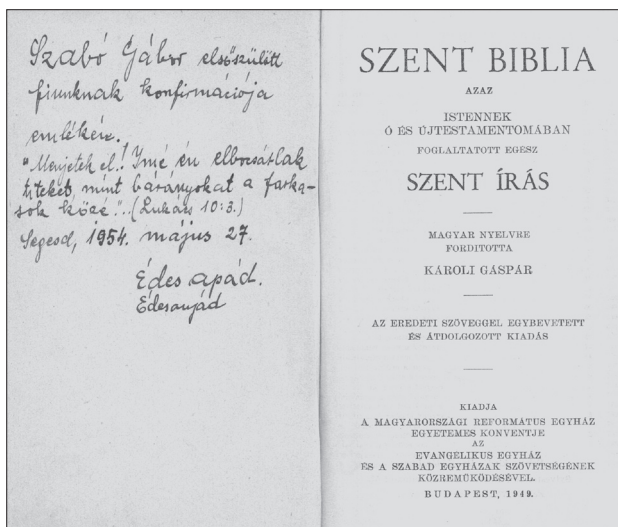 Szabó Gábor elsőszülött
fiunknak konfirmációja
emlékére.
"Menjetek el! Ímé én elbocsátlak
titeket, mint bárányokat a farka-
sok közé."..(Lukács 10:3.)
Segesd, 1954. május 27.
Édes apád.
Édesanyád
SZENT BIBLIA
AZAZ
ISTENNEK
Ó ÉS ÚJTESTAMENTOMÁBAN
FOGLALTATOTT EGÉSZ
SZENT ÍRÁS
MAGYAR NYELVRE
FORDITOTTA
KÁROLI GÁSPÁR
AZ EREDETI SZÖVEGGEL EGYBEVETETT
ÉS ÁTDOLGOZOTT KIADÁS
KIADJA
A MAGYARORSZÁGI REFORMÁTUS EGYHÁZ
EGYETEMES KONVENTJE
AZ
EVANGÉLIKUS EGYHÁZ
ÉS A SZABAD EGYHÁZAK SZÖVETSÉGÉNEK
KÖZREMŰKÖDÉSÉVEL.
BUDAPEST, 1949.